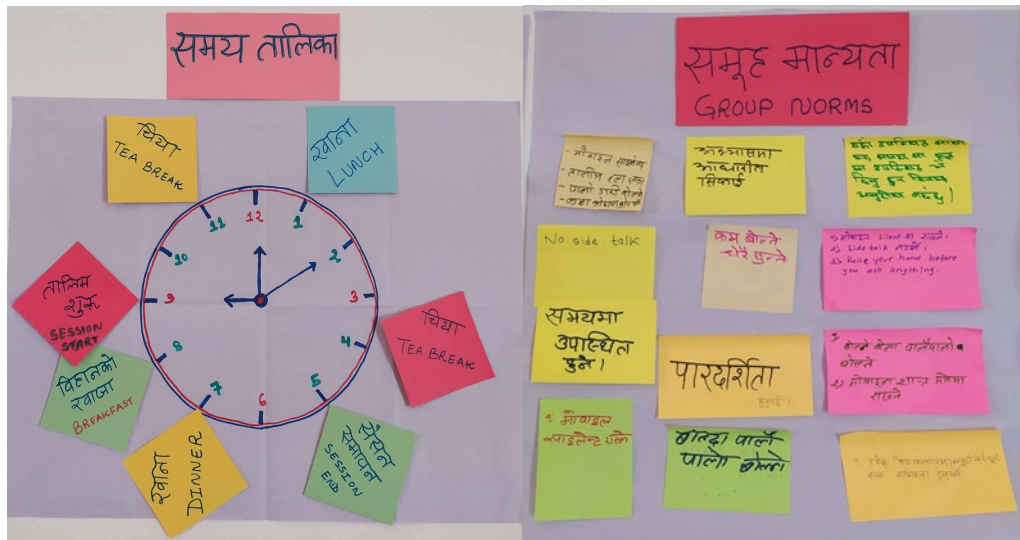 समय तालिका
चिया
TEA BREAK
खाना
LUNCH
12
1
2
3
4
5
6
7
8
9
10
11
तालिम
शुरू
SESSION
START
चिया
TEA BREAK
बिहानको
खाजा
BREAKFAST
खाना
DINNER
सेसन
समापन
SESSION
END
समूह मान्यता
GROUP NORMS
- मोबाइल
अभ्यासमा
आधारीत
सिकाई
No side talk
कम बोल्ने
धेरै सुन्ने
1) मोबाइल silent मा राख्ने।
2) Side talk नगर्ने।
3) Raise your hand before
you ask anything.
समयमा
उपस्थित
हुने।
पारदर्शिता
हुनुपर्ने।
१ बोल्ने बेला पालैपालो
बोल्ने
२) मोबाइल
राख्ने
१ मोबाइल
साइलेन्ट राख्ने
बोल्दा पालै
पालो बोल्ने